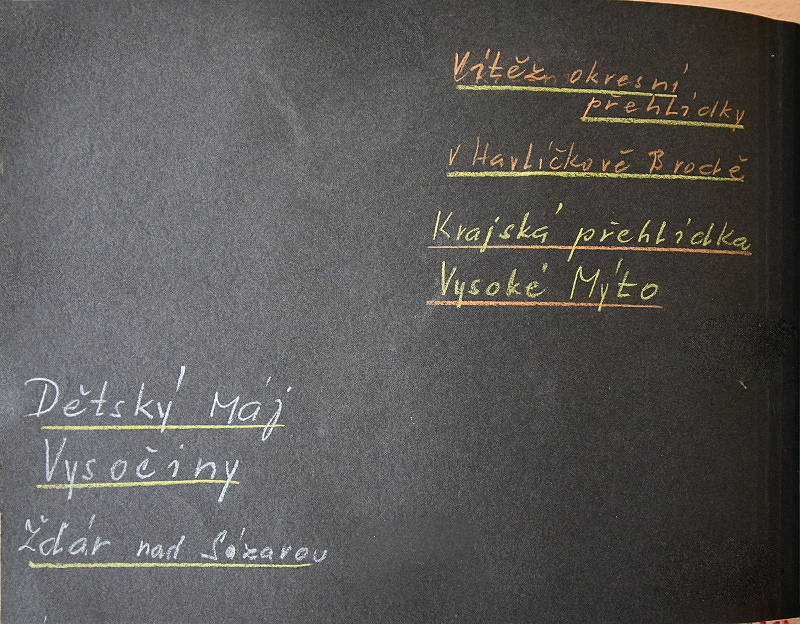 Vítěz okresní
přehlídky
v Havlíčkově Brodě
Krajská přehlídka
Vysoké Mýto
Dětský Máj
Vysočiny
Žďár nad Sázavou